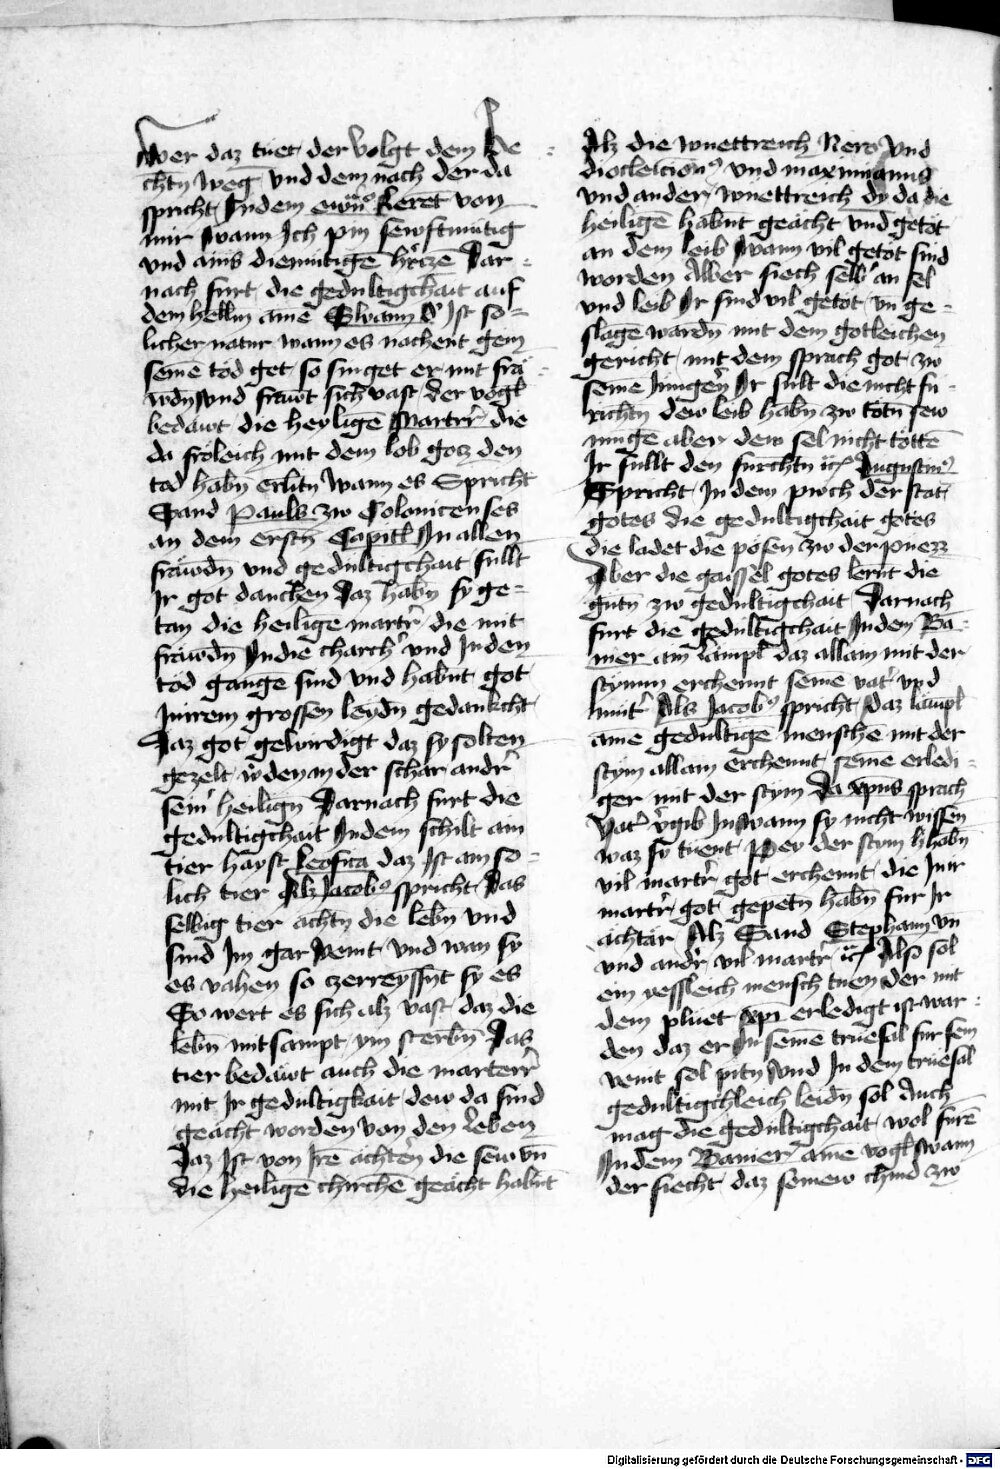 Wer daz tuet der volgt dem Re
chtn weg vnd dem nach der da
spricht Indem ewn̄ Keret von
mir wann Ich pin senftmutig
vnd ains diemutigē hr̄czē Dar
nach furt die gedultigchait auf
dem hellm ainē Elbann d' Ist so
licher natur wann es nachent gein
seinē tod get so singet er mit frä
wdn vnd fräwt sich vast der vogl
bedäwt die heyligē Martr̄ die
da fröleich mit dem lob gotz den
tod habn erlitn wann es Spricht
Sand Pauls zw Colonicenses
an dem erstn Capitl In allen
fräwdn vnd gedultigchait sullt
Ir got dancken Daz habn sy ge
tan die heilige martr̄ die mit
fräwdn Indie charchr̄ vnd In den
tod gangē sind vnd habnt got
In irem grossen leydn gedankcht
Daz got gewirdigt daz sy solten
gezelt w̄den in der schar andr̄
sein' heilign Darnach furt die
gedultigchait Indem schilt ain
tier hayst Leofica daz Ist ain so
lich tier Alz Jacob9 spricht Das
selbig tier achtn die lebn vnd
sind Im gar veint vnd wan sy
es vahen so czerreyssnt sy es
So wert es sich alz vast daz die
lebn mitsampt ym sterbn Das
tier bedäwt auch die marterr̄
mit Ir gedultigkait dew da sind
geächt worden von den Leben
Daz Ist von Irē ächtern die sew vn̄
die heiligē chirchē geächt habnt
Alz die wuettreich Nero vnd
dioclecion9 vnd maximianus
vnd ander wuettreich dy da die
heiligē habnt geächt vnd getöt
an dem leib wann vil getöt sind
worden Aber siech selb' an sel
vnd leib Ir sind vil getöt vn̄ ge
slagē wardn mit dem gotleichen
gericht mit dem sprach got zw
seinē Jungern̄ Ir sült die nicht fü
richtn dew leib habn zw tötn sew
mugē aber dew sel nicht töttē
Ir sullt den furchtn &c Augustin9
Spricht In dem puch der stat
gotes die gedultigchait gotes
die ladet die pösen zw der puezz
Aber die gaissel gotes lernt die
gutn zw gedultigchait Darnach
furt die gedultigchait Indem Ba
nier ain lampl daz allain mit der
stymm erchennt seinē vat' vnd
muter Als Jacob9 spricht Daz lämpl
ainē gedultigē menschē mit der
stym allain erchennt seinē erledi
ger mit der stym Da xp̄us sprach
Vat' v̄gib In wann sy nicht wissen
waz sy tuent Pey der stym habn
vil martr̄ got erchennt die Im
martr̄ got gepetn habn fur Ir
ächtär Alz Sand Stephann vn̄
vnd andr̄ vil martr̄ &c Also sol
ein yessleich mensch tuen der mit
dem pluet xp̄i erledigt ist war
den daz er In seinē trüesal fur sein
veint sol pitn vnd In dem trüesal
gedultigchleich leidn sol Auch
mag die gedultigchait wol furē
Indem Banier ainē vogl wann
der siecht daz seinew chind zw
Digitalisierung gefördert durch die Deutsche Forschungsgemeinschaft - DFG